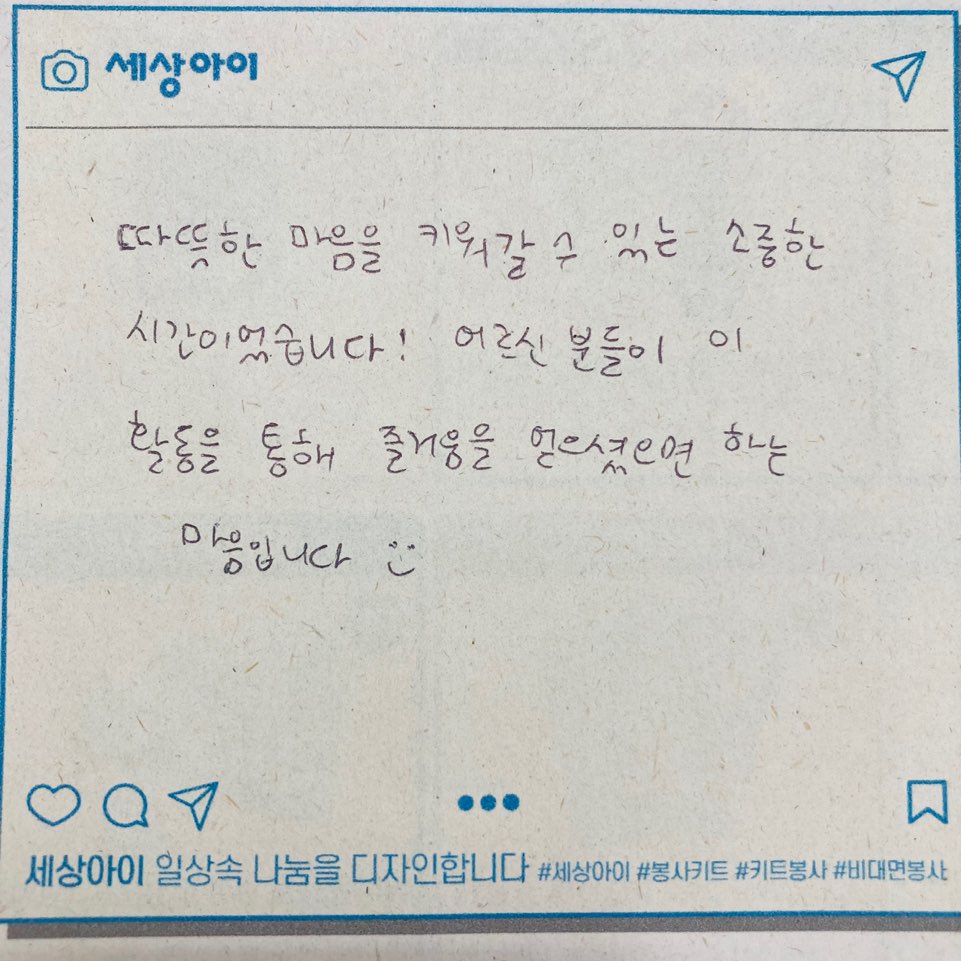 세상아이
따뜻한 마음을 키워갈 수 있는 소중한
시간이었습니다! 어르신 분들이 이
활동을 통해 즐거움을 얻으셨으면 하는
마음입니다 :)
세상아이 일상속 나눔을 디자인합니다 #세상아이 #봉사키트 #키트봉사 #비대면봉사